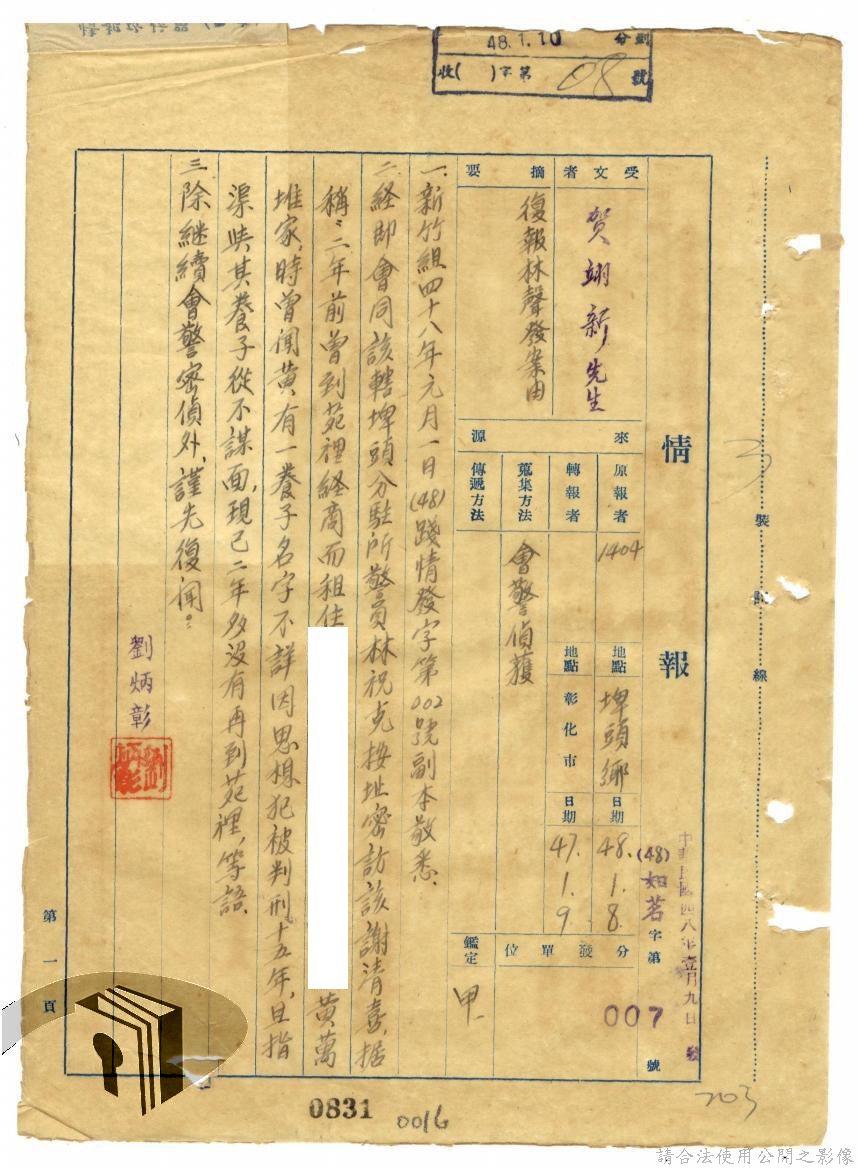 48.1.10
收( )字第08號
情報
中華民國四八年壹月九日
(48)如茗字第007號
受文者
賀翊新先生
摘要
復報林聲發案由
來源
原報者
1404
地點
埤頭鄉
日期
48.1.8.
轉報者
地點
彰化市
日期
47.1.9.
蒐集方法
會警偵獲
傳遞方法
分發單位
鑑定
甲.
一.新竹組四十八年元月一日(48)踐情發字第002號副本敬悉.
二.経即會同該轄埤頭分駐所警員林祝克按址密訪該謝清喜,据
稱:二年前曾到苑裡経商而租住
黃萬
堆家,時曾聞黃有一養子名字不詳因思想犯被判刑十五年,且指
渠與其養子從不謀面,現已二年多没有再到苑裡,等語.
三.除継續會警密偵外,謹先復聞。
劉炳彰
第一頁
裝訂線
0831
0016
203
請合法使用公開之影像